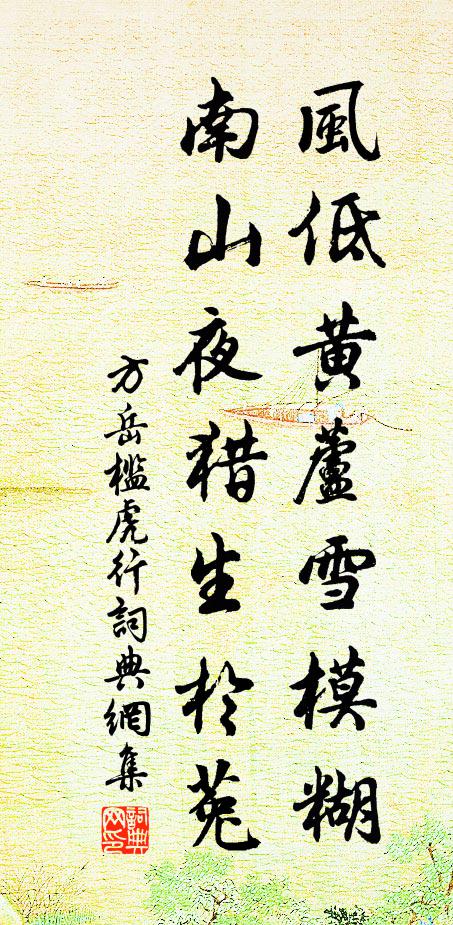 風低黃蘆雪模糊
南山夜猎生於菟
方岳檻虎行詞典網集
詞典网印